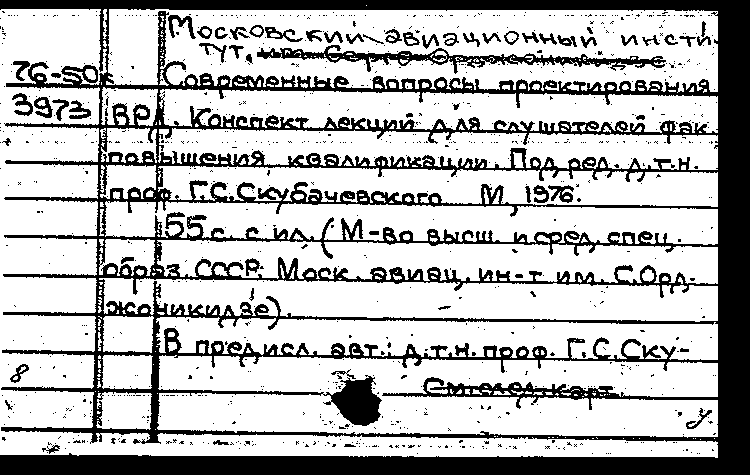 Московский авиационный инсти-
тут. им. Серго Орджоникидзе
76-50к Современные вопросы проектирования
3973 ВРД. Конспект лекций для слушателей фак.
повышения квалификации. Под ред. д.т.н.
проф. Г.С.Скубачевского М., 1976.
55 с. с ил. (М-во высш. и сред. спец.
образ. СССР. Моск. авиац. ин-т им. С.Орд-
жоникидзе).
В предисл. авт.: д.т.н. проф. Г.С.Ску-
8
карт
у.